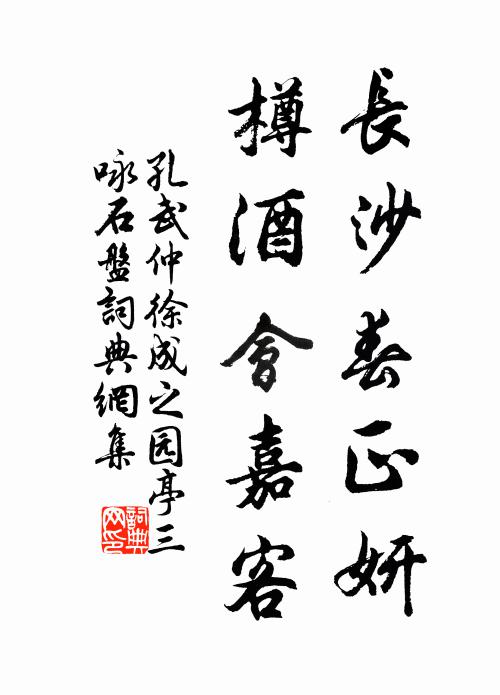 長沙春正妍
樽酒會嘉客
孔武仲徐成之园亭三
咏石盤詞典網集
詞典網印